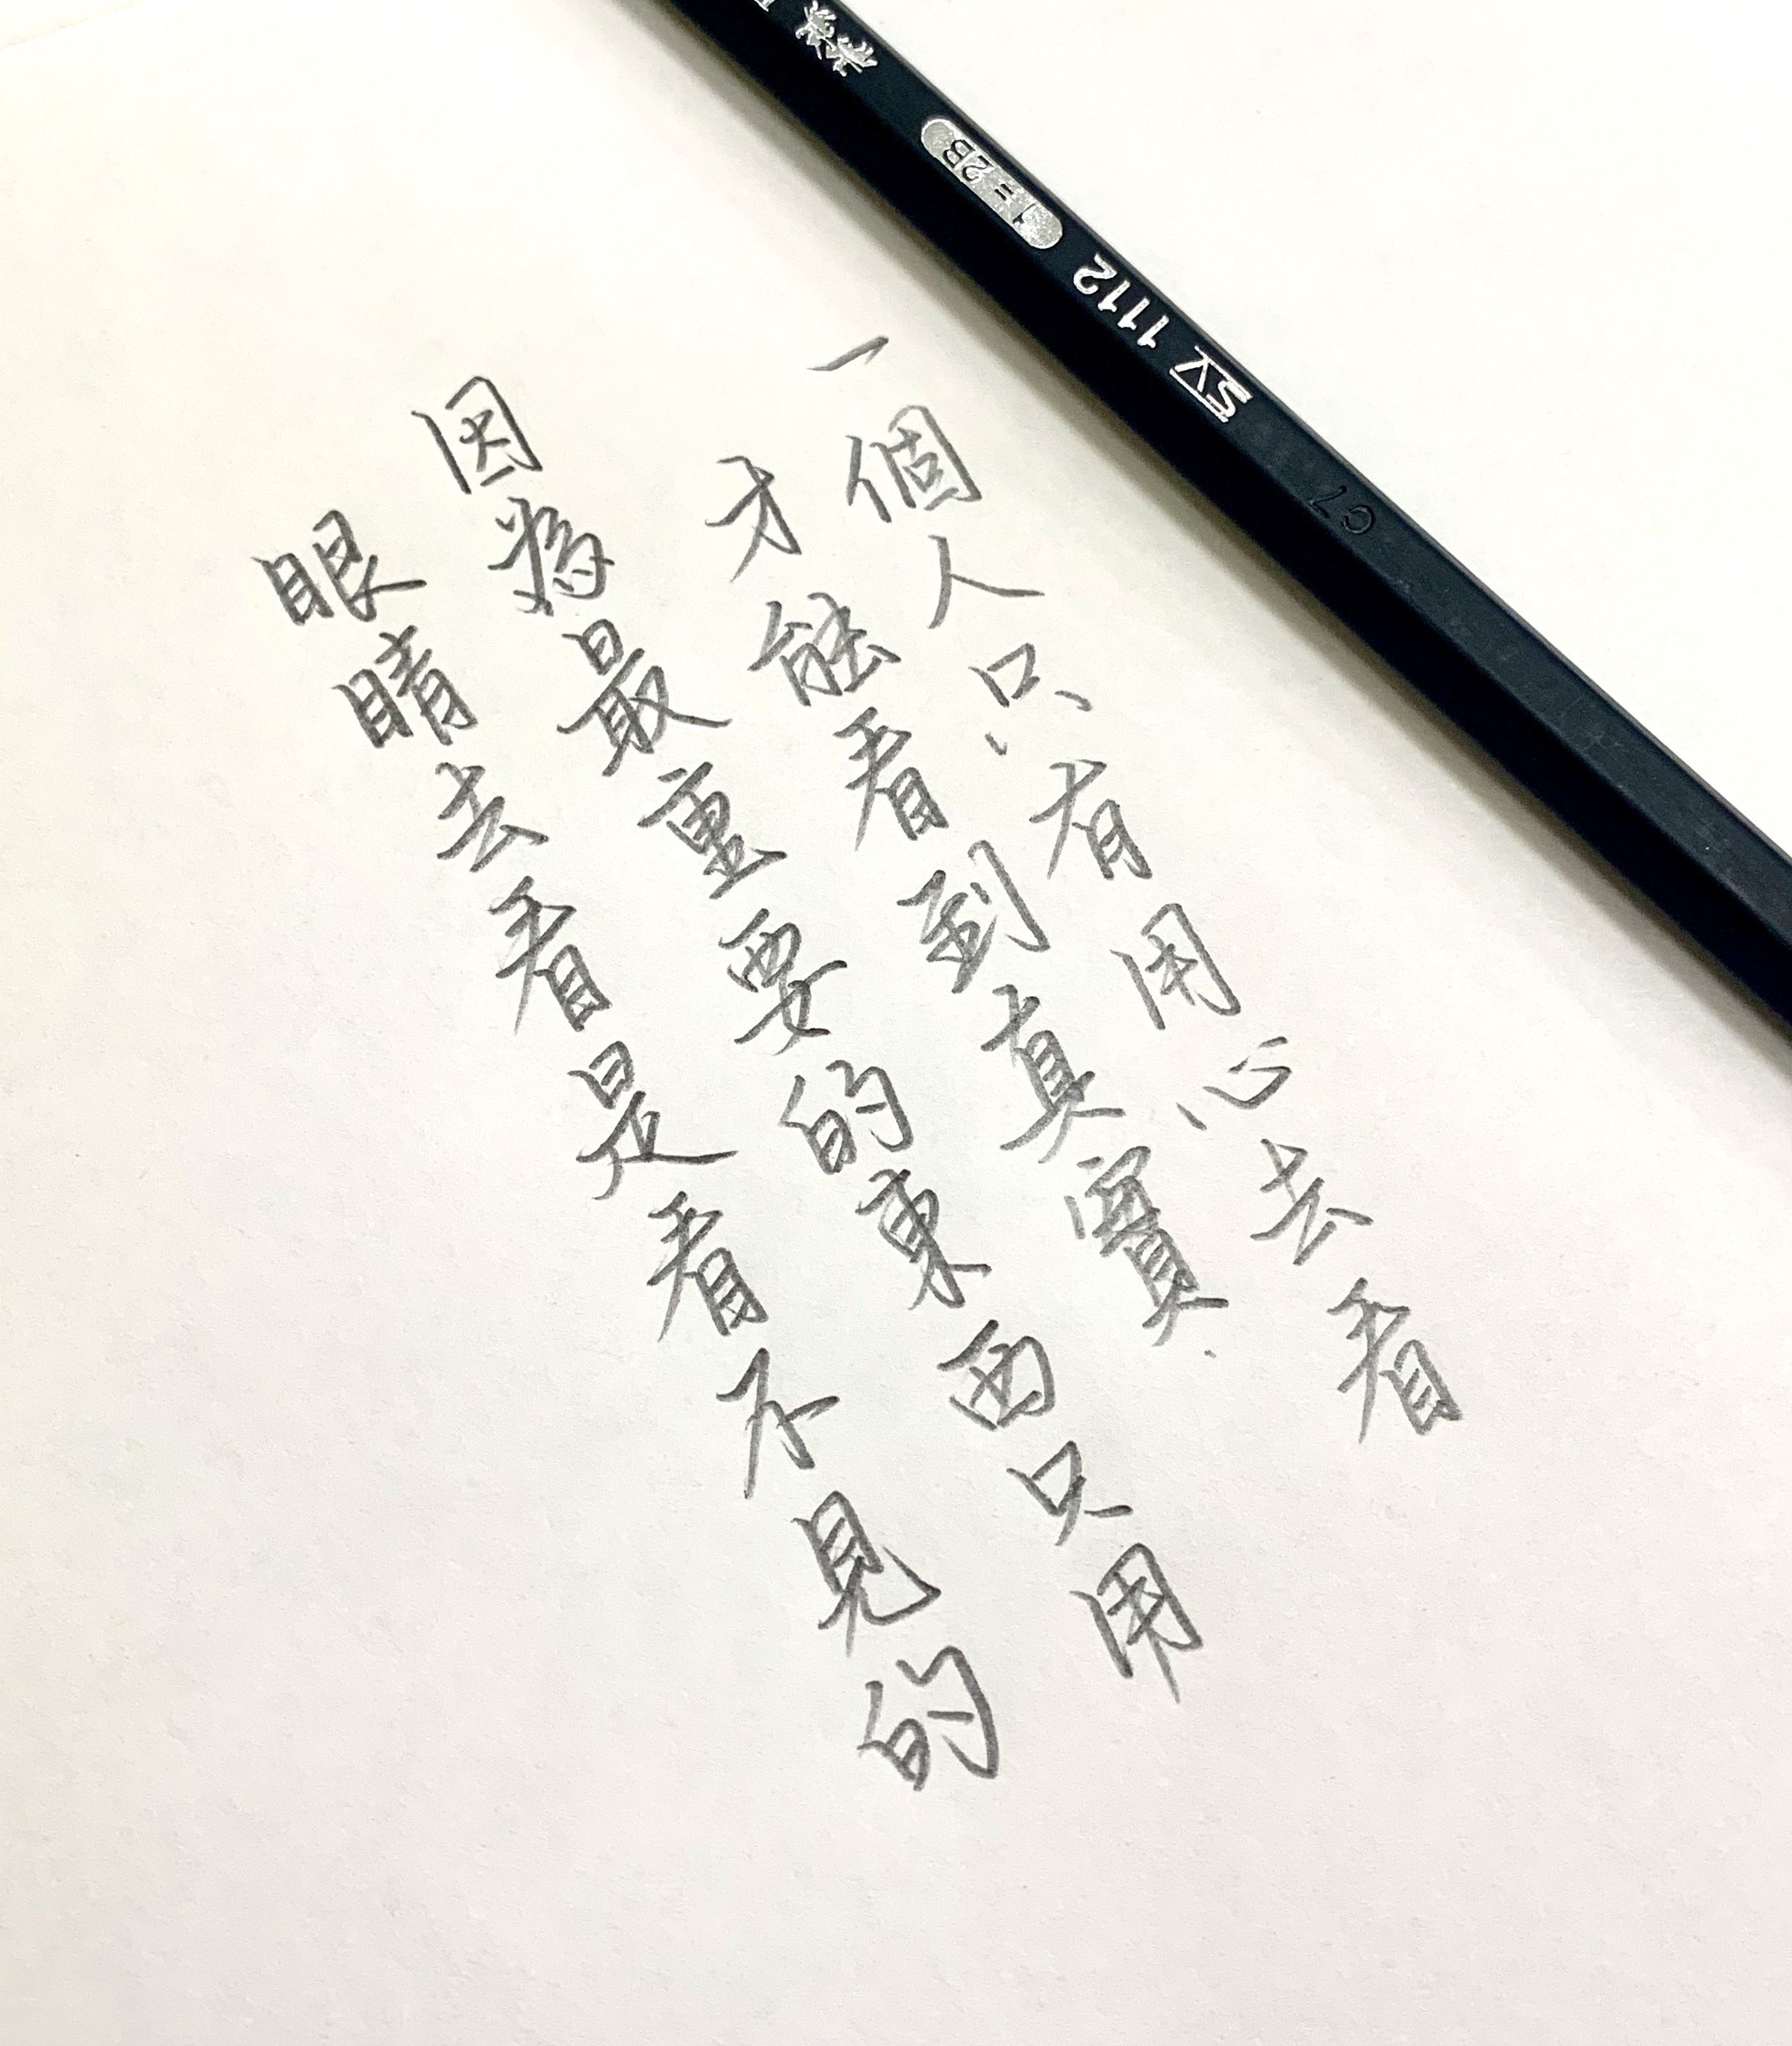 一個人只有用心去看
才能看到真實
因為最重要的東西只用
眼睛去看是看不見的
1=2B
SV 1112
C7